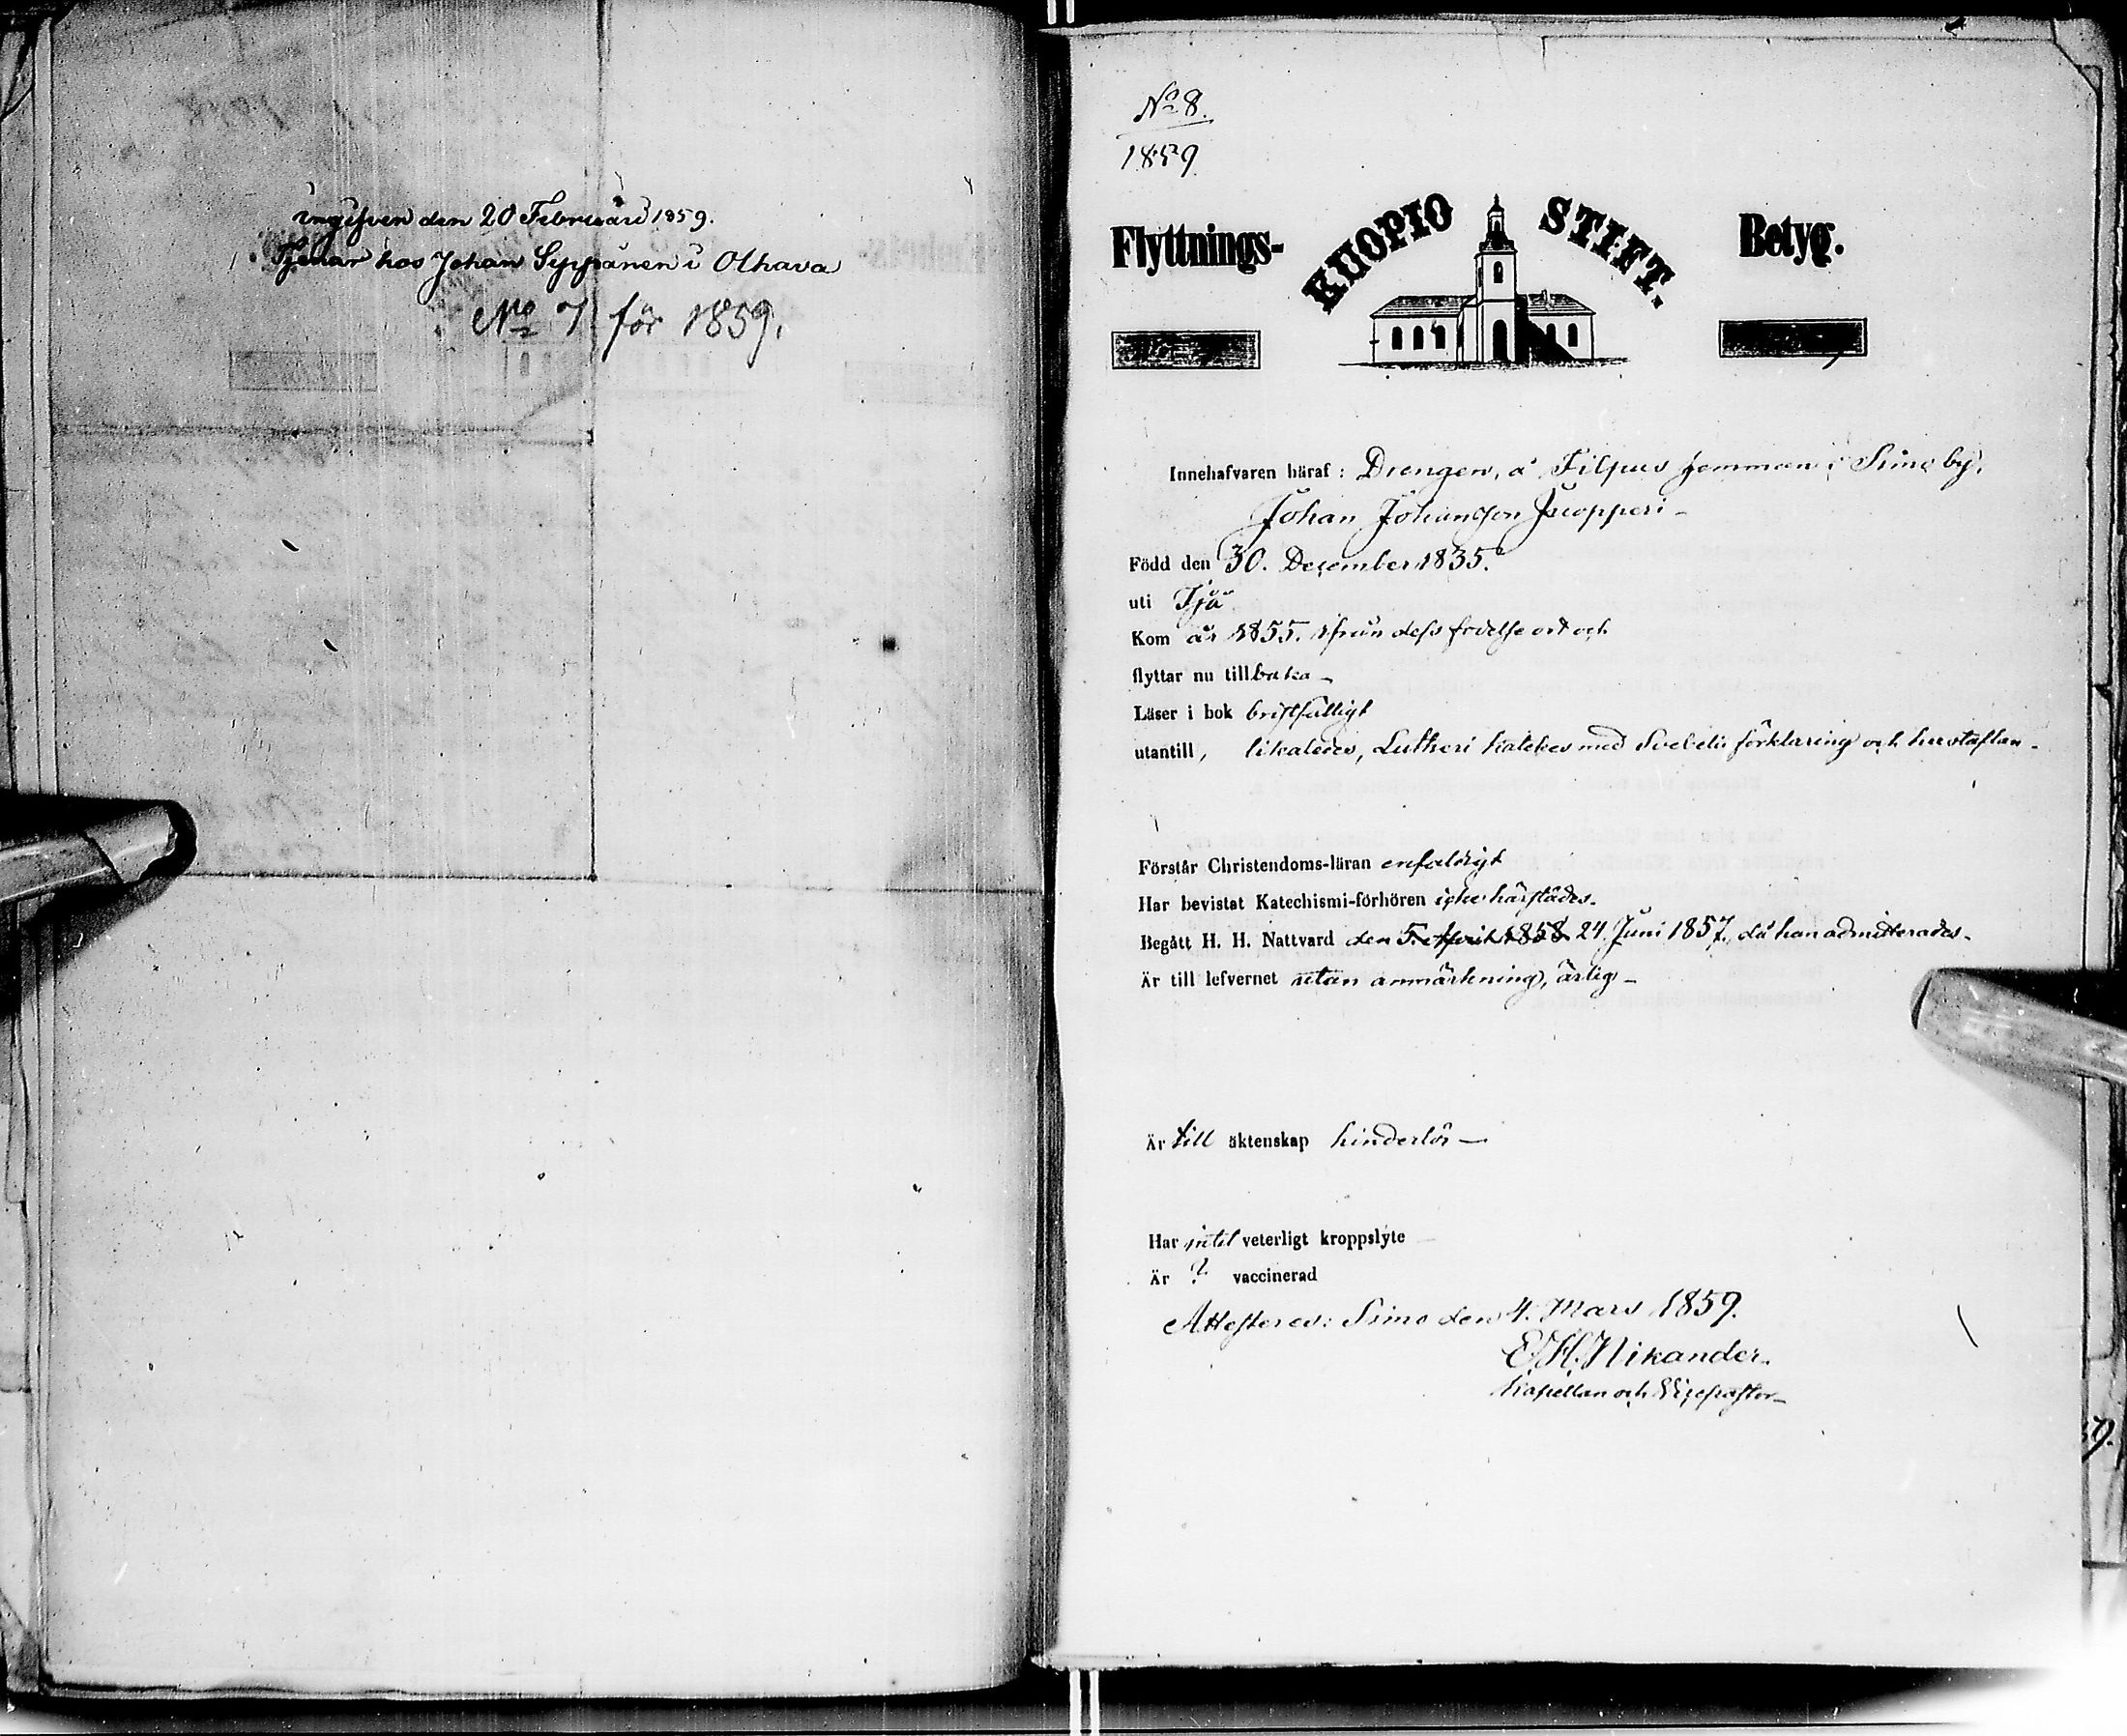 ingifven den 20 Februari 1859.
Tjenar hos Johan Seppänen i Olhava
No 7 för 1859.
No 8.
1859
Flyttnings- KUOPIO STIFT. Betyg.
Innehafvaren häraf: Drengen, å Filpus Jemmana i Simo by,
Johan Johansson Juopperi
Född den 30. December 1835.
uti Ijo
Kom år 1855. ifrån dess födelse ort och
flyttar nu tillbaka
Läser i bok bristfälligt
utantill, likaledes, Lutheri kateches med Svebelii förklaring och hustaflan.
Förstår Christendoms-läran enfaldigt
Har bevistat Katechismi-förhören icke härstädes.
Begått H. H. Nattvard den 5. April 1858 24. Juni 1857, då han admitterades.
Är till lefvernet utan anmärkning, ärlig
Är till äktenskap hinderlös
Har intet veterligt kroppslyte
Är ? vaccinerad
Attesteres: Simo den 4. Mars 1859.
E. H. Nikander.
Kapellan och Vicepastor
59.